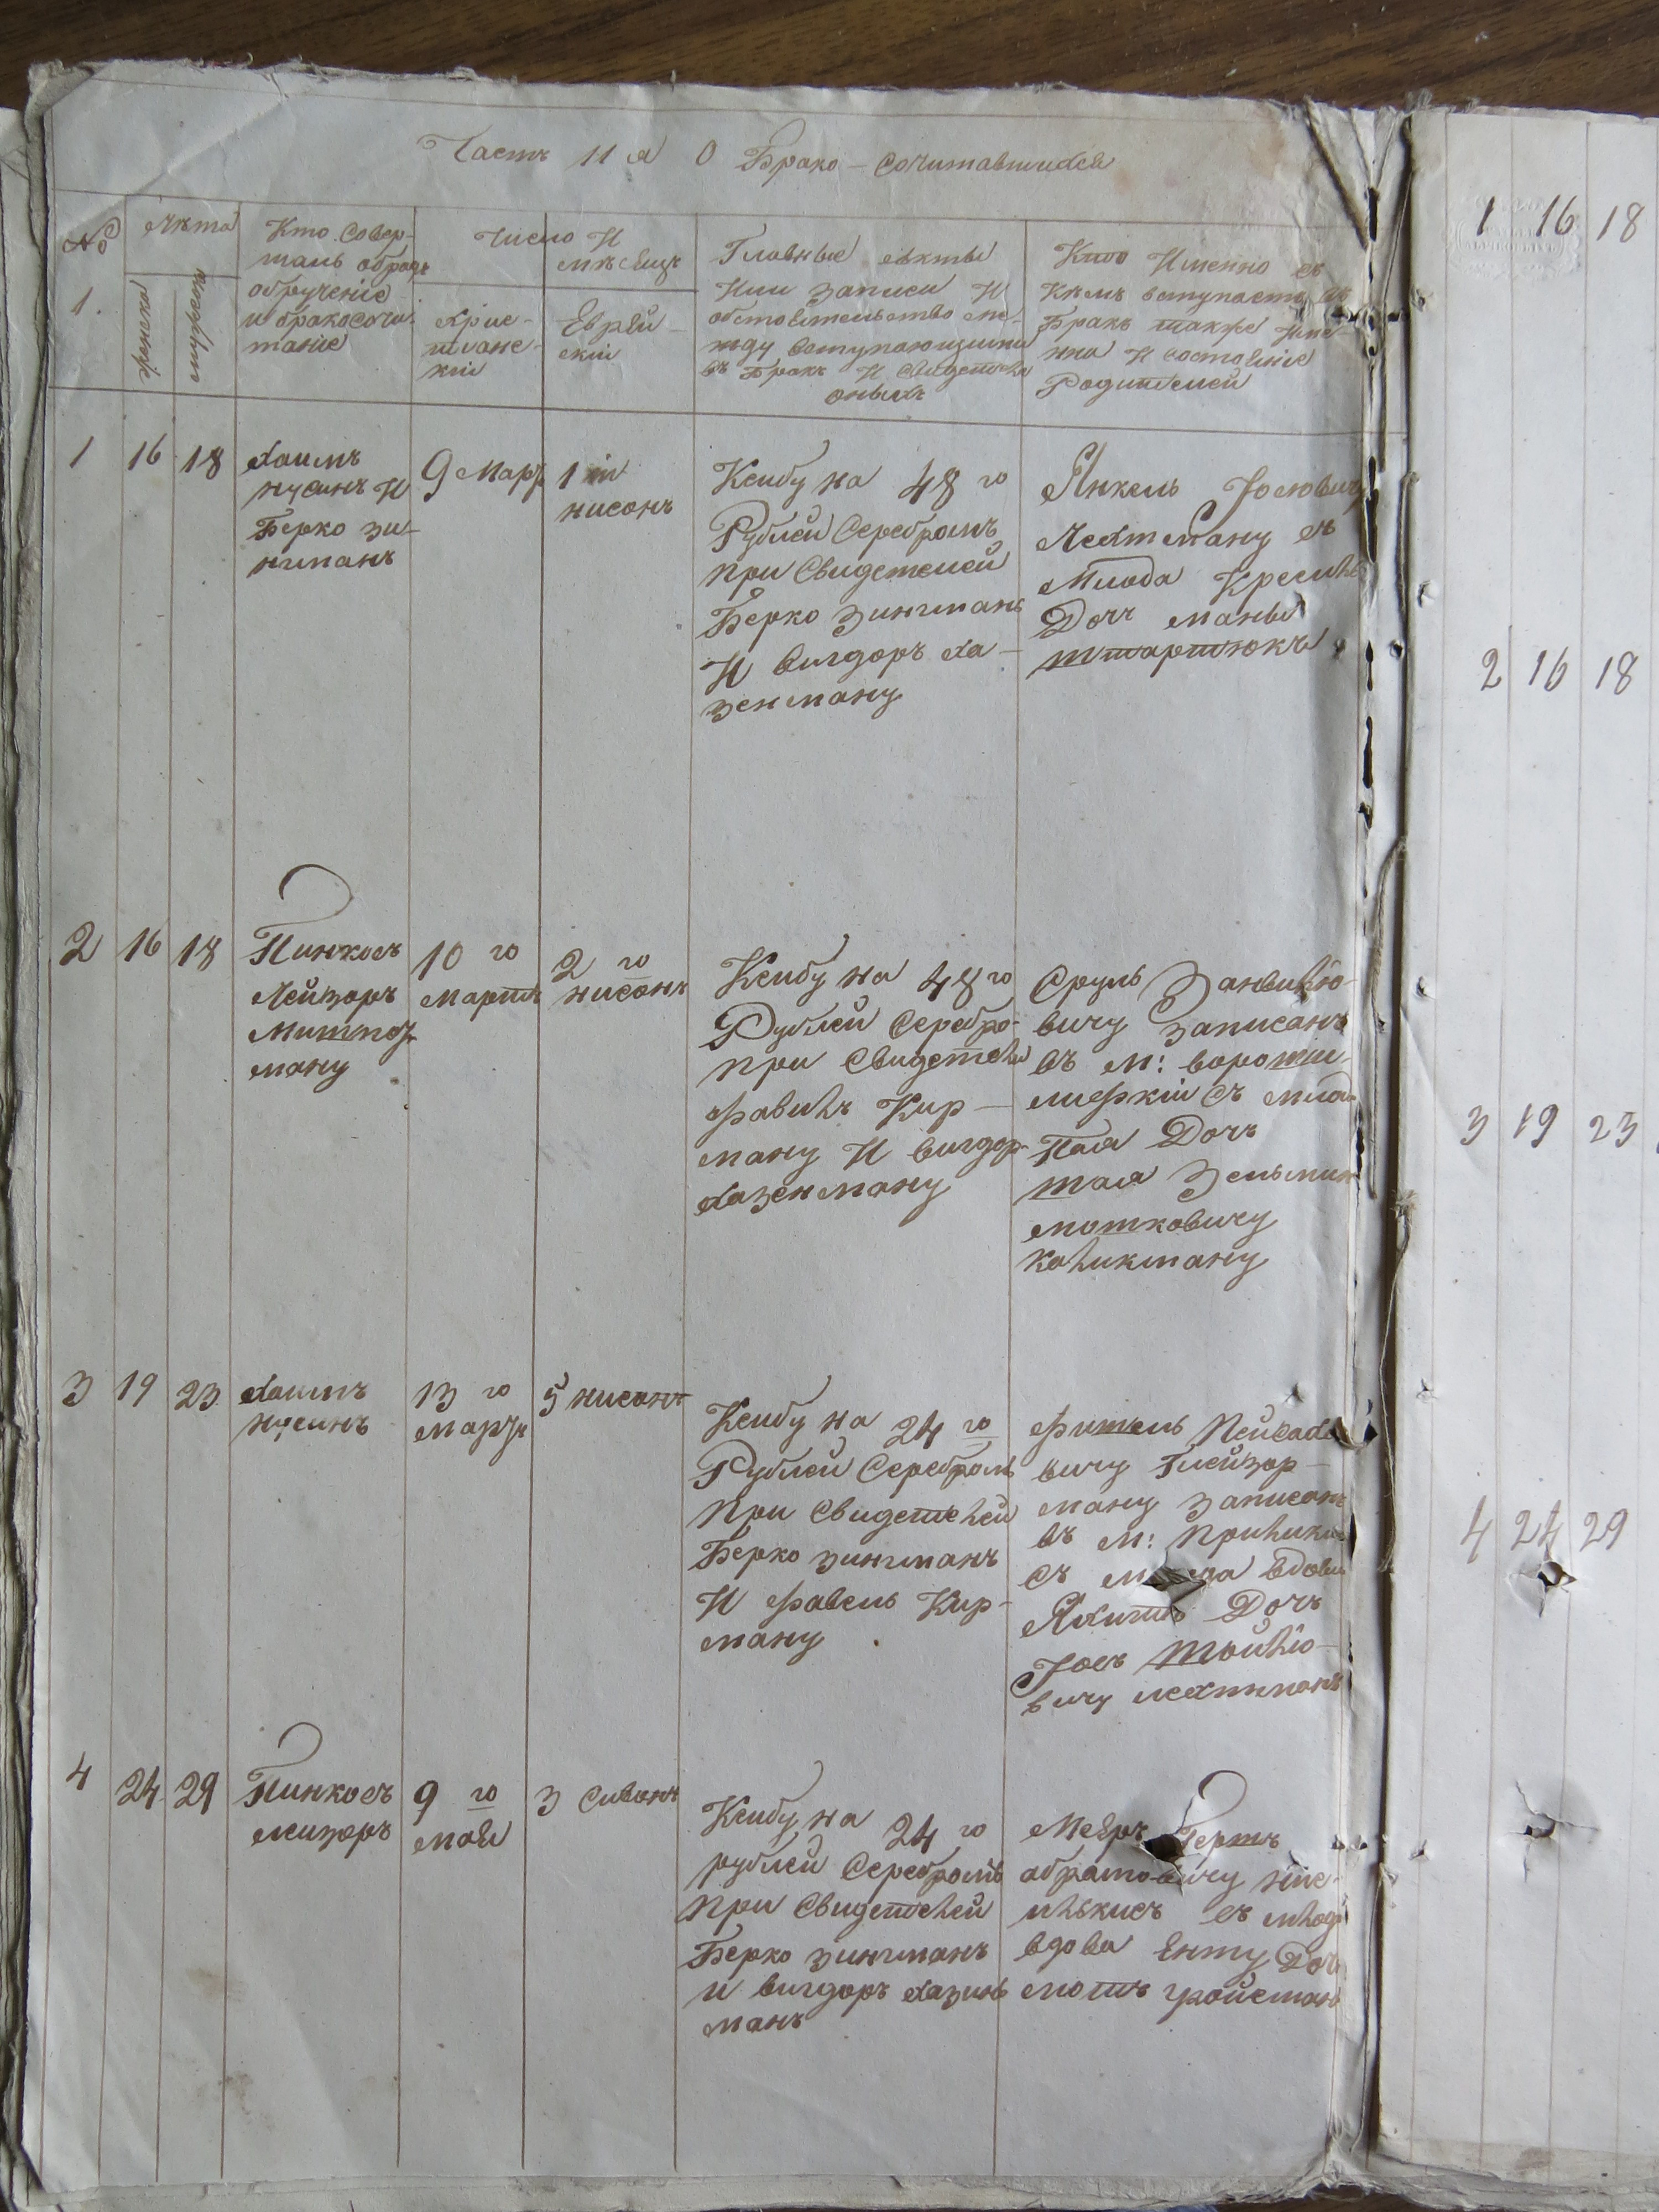 Часть 11 я О Брако-сочитавшихся
№
1.
лѣта
женскъ
мужескъ
Кто Совер-
шалъ обрядъ
обрученіе
и бракосочи-
таніе
Число И
мѣсяцъ
Хрис-
тіанс-
кій
Еврей-
скій
Главные акты
Или записи И
обстоятельство ме-
жду вступающими
въ Бракъ И Свидетели
оныхъ
Кто Именно съ
кѣмъ вступаетъ въ
Бракъ также Име-
нна И состояніе
Родителей
1
16
18
хаимъ
нусинъ И
Берко зи-
нгманъ
9 Март
1 го
нисонъ
Ксибу на 48 го
Рублей Серебромъ
при Свидетелей
Берко Зингманъ
И вигдоръ ха-
зенману
Янкель Іосіовичу
Лехтману съ
Млода Кресиле
Дочь маны
штартюкъ
2
16
18
Пинхосъ
Лейзоръ
Митпог
ману
10 го
мартъ
2 го
нисонъ
Ксибу на 48 го
Рублей Серебро-
при Свидетели
фавиль Кир-
ману И вигдор
хазенману
Сруль Занвилю-
вичу записанъ
въ м: ворошы-
лифкій съ млода
Пая Дочъ
шая Зельман
мошковичу
каликману
3
19
23
хаимъ
нусинъ
13 го
мартъ
5 нисонъ
Ксибу на 24 го
Рублей Серебромъ
при Свидетелей
Берко зингманъ
И фавель Кир-
ману
фишель Пейсахо
вичу Глейзер-
ману записанъ
въ м: прилики
съ вдова
Дочъ
Іосъ шойлю-
вичу лехтманъ
4
24
29
Пинхосъ
лейзоръ
9 го
май
3 Сивонъ
Ксибу на 24 го
рублей Серебромъ
при Свидетелей
Берко зингманъ
и вигдоръ хазин
манъ
Мееръ Гершъ
абрамовичу
съ млода
вдова Енту Дочъ
мошъ гройсман
1 16 18
2 16 18
3 19 23
4 24 29